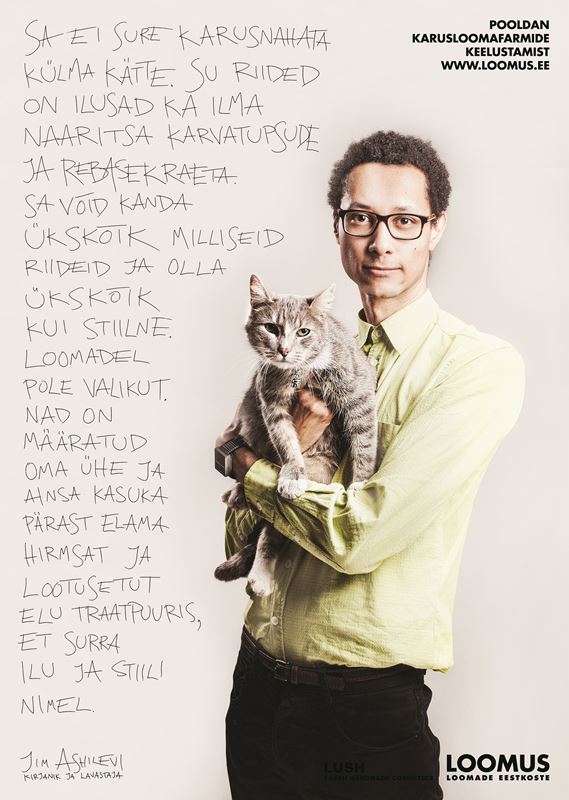 POOLDAN
KARUSLOOMAFARMIDE
KEELUSTAMIST
WWW.LOOMUS.EE
SA EI SURE KARUSNAHATA
KÜLMA KÄTTE. SU RIIDED
ON ILUSAD KA ILMA
NAARITSA KARVATUPSUDE
JA REBASEKRAETA.
SA VÕID KANDA
ÜKSKÕIK MILLISEID
RIIDEID JA OLLA
ÜKSKÕIK
KUI STIILNE.
LOOMADEL
POLE VALIKUT.
NAD ON
MÄÄRATUD
OMA ÜHE JA
AINSA KASUKA
PÄRAST ELAMA
HIRMSAT JA
LOOTUSETUT
ELU TRAATPUURIS,
ET SURRA
ILU JA STIILI
NIMEL.
JIM ASHILEVI
KIRJANIK JA LAVASTAJA
LUSH
FRESH HANDMADE COSMETICS
LOOMUS
LOOMADE EESTKOSTE